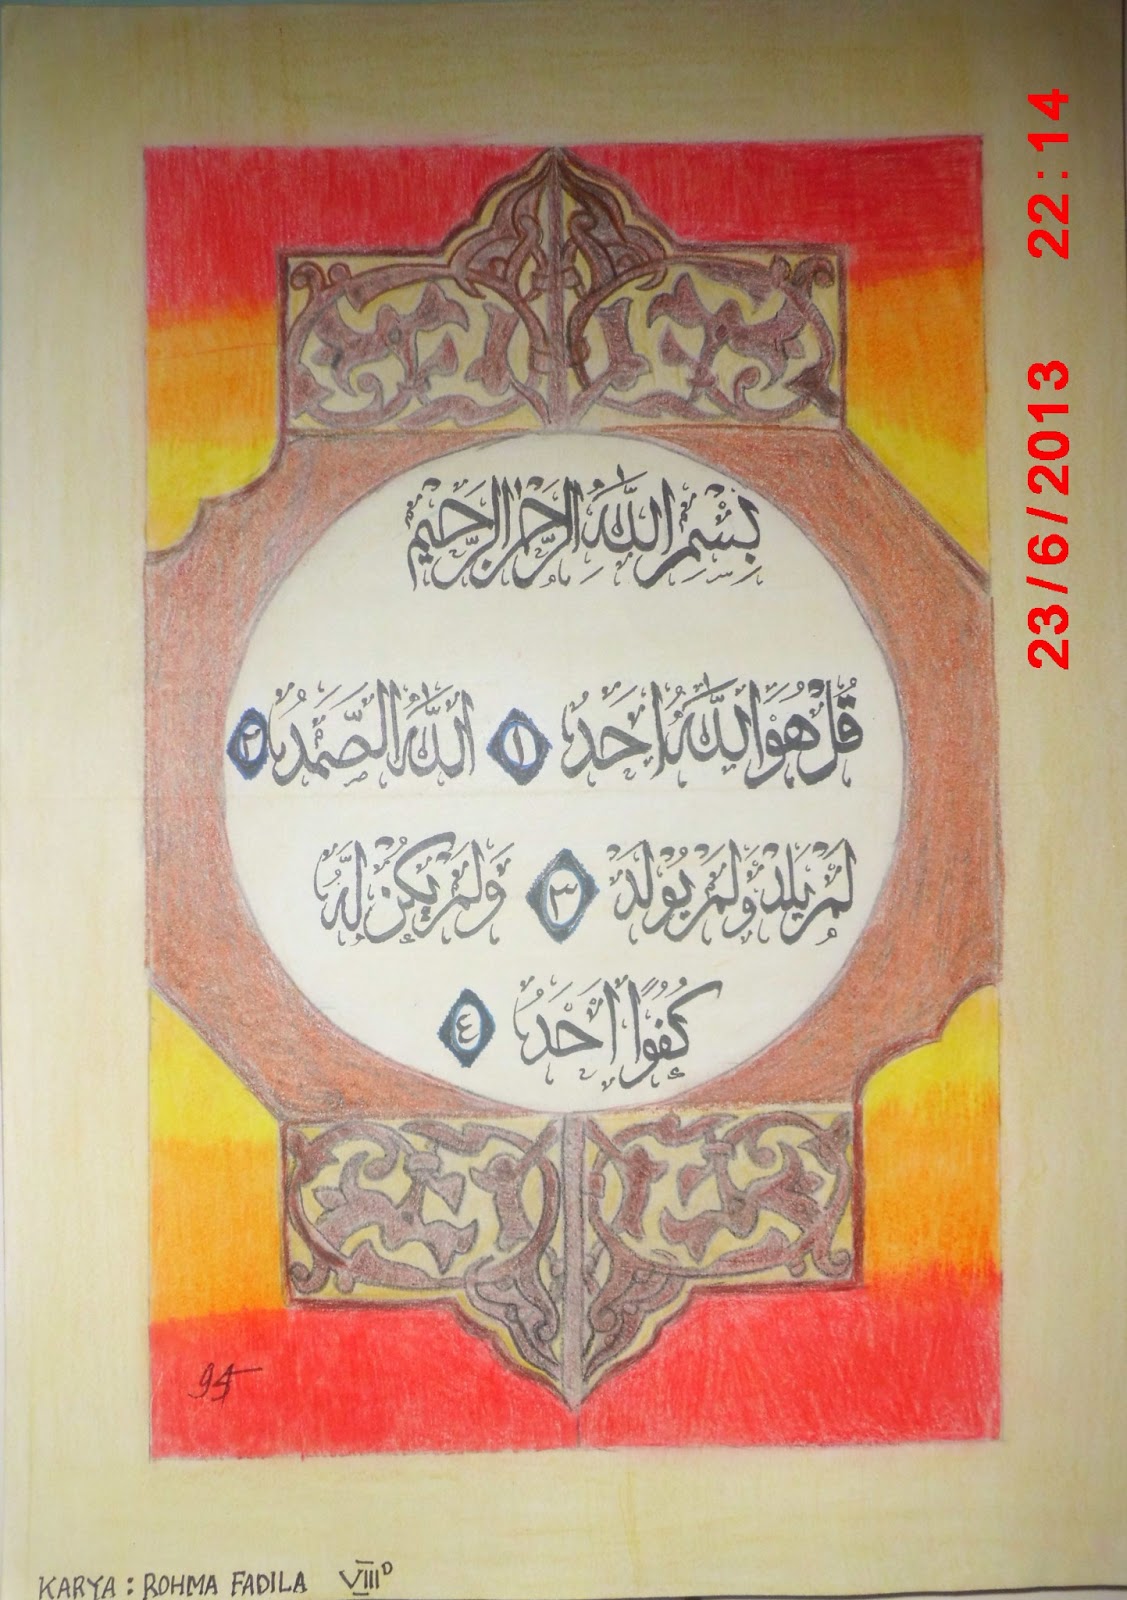 بِسْمِ اللَّهِ الرَّحْمَٰنِ الرَّحِيمِ
قُلْ هُوَ اللَّهُ أَحَدٌ ١ اللَّهُ الصَّمَدُ ٢
لَمْ يَلِدْ وَلَمْ يُولَدْ ٣ وَلَمْ يَكُنْ لَهُ
كُفُوًا أَحَدٌ ٤
94
KARYA : ROHMA FADILA VIII D
23/6/2013 22:14